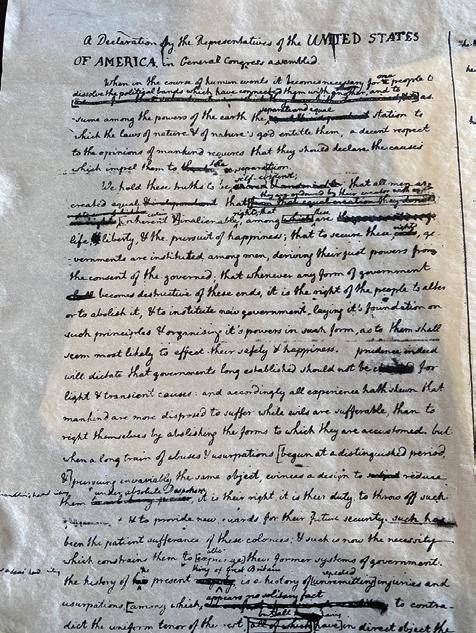 A Declaration by the Representatives of the UNITED STATES
OF AMERICA, in General Congress assembled.
When in the course of human events it becomes necessary for one people to
dissolve the political bands which have connected them with another, and to
as-
separate and equal
sume among the powers of the earth the station to
which the laws of nature & of nature's god entitle them, a decent respect
to the opinions of mankind requires that they should declare the causes
which impel them to the separation.
self-evident;
We hold these truths to be that all men are
created equal that
rights; that
inherent & inalienable, among which are
life liberty, & the pursuit of happiness; that to secure these rights, go-
vernments are instituted among men, deriving their just powers from
the consent of the governed. that whenever any form of government
becomes destructive of these ends, it is the right of the people to alter
or to abolish it, & to institute new government, laying it's foundation on
such principles & organising it's powers in such form, as to them shall
seem most likely to effect their safety & happiness. prudence indeed
will dictate that governments long established should not be for
light & transient causes: and accordingly all experience hath shewn that
mankind are more disposed to suffer while evils are sufferable, than to
right themselves by abolishing the forms to which they are accustomed. but
when a long train of abuses & usurpations [begun at a distinguished period,
&] pursuing invariably the same object, evinces a design to reduce
under absolute Despotism
them it is their right, it is their duty, to throw off such
& to provide new guards for their future security. such has
been the patient sufferance of these colonies; & such is now the necessity
which constrains them to [expunge] their former systems of government.
king of Great Britain
the history of the present is a history of [unremitting] injuries and
appears no solitary fact
usurpations [among which, to contra-
but all
dict the uniform tenor of the rest [all of which] [have] in direct object the